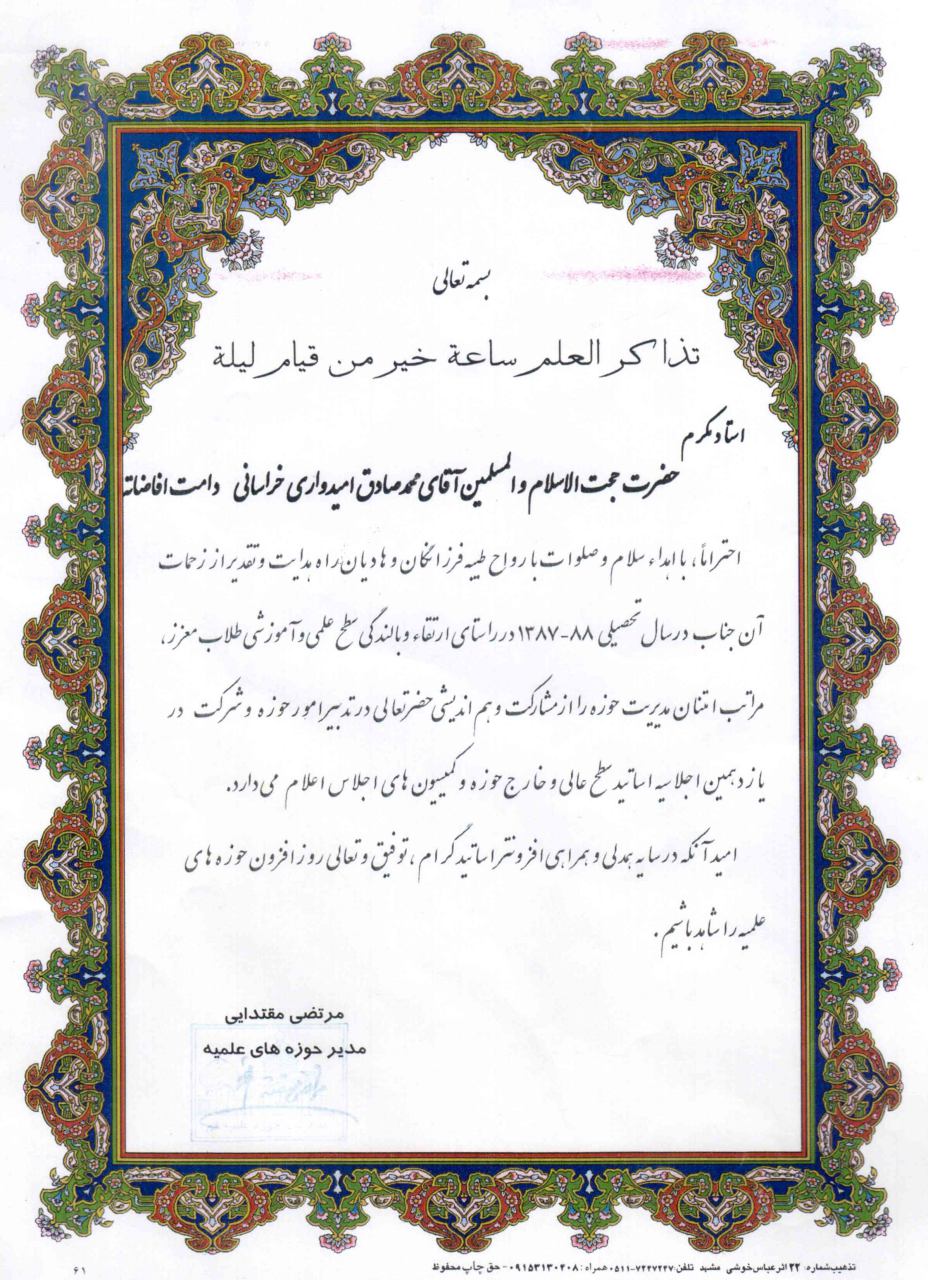 بسمه تعالی
تذاکر العلم ساعة خیر من قیام لیلة
استاد مکرم
حضرت حجت الاسلام والمسلمین آقای محمد صادق امیدواری خراسانی دامت افاضاته
احتراماً، با اهداء سلام و صلوات بارواح طیبه فرزانگان و هادیان راه هدایت و تقدیر از زحمات
آن جناب در سال تحصیلی ۸۸-۱۳۸۷ در راستای ارتقاء و بالندگی سطح علمی و آموزشی طلاب معزز،
مراتب امتنان مدیریت حوزه را از مشارکت و هم اندیشی حضرتعالی در تدبیر امور حوزه و شرکت در
یازدهمین اجلاسیه اساتید سطح عالی و خارج حوزه و کمیسیون های اجلاس اعلام می دارد.
امید آنکه در سایه همدلی و همراهی افزونتر اساتید گرام، توفیق و تعالی روز افزون حوزه های
علمیه را شاهد باشیم.
مرتضی مقتدایی
مدیر حوزه های علمیه
تذهیب شماره: ۲۲ اثر عباس خوشی مشهد تلفن: ۷۲۴۷۲۴۷-۰۵۱۱ همراه: ۰۹۱۵۳۱۳۰۴۰۸ - حق چاپ محفوظ
۶۱